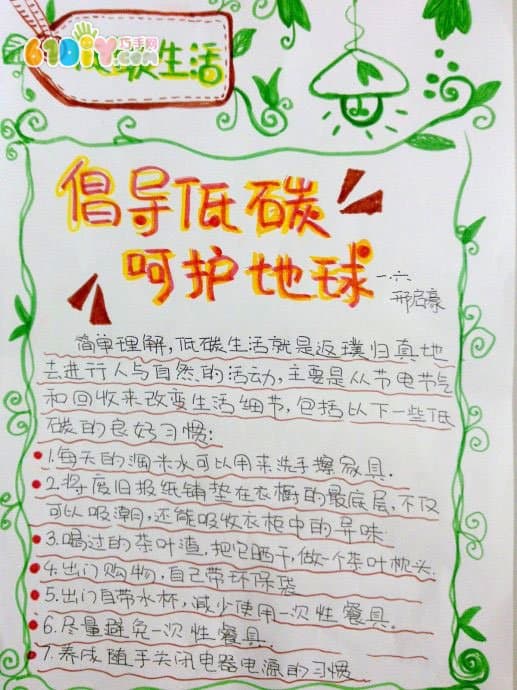 61DIY巧手网
.com
碳生活
倡导低碳
呵护地球
一.六
邢启豪
简单理解,低碳生活就是返璞归真地
去进行人与自然的活动,主要是从节电节气
和回收来改变生活细节,包括以下一些低
碳的良好习惯:
1.每天的淘米水可以用来洗手擦家具.
2.将废旧报纸铺垫在衣橱的最底层,不仅
可以吸潮,还能吸收衣柜中的异味.
3.喝过的茶叶渣,把它晒干,做一个茶叶枕头.
4.出门购物,自己带环保袋
5.出门自带水杯,减少使用一次性餐具.
6.尽量避免一次性餐具
7.养成随手关闭电器电源的习惯